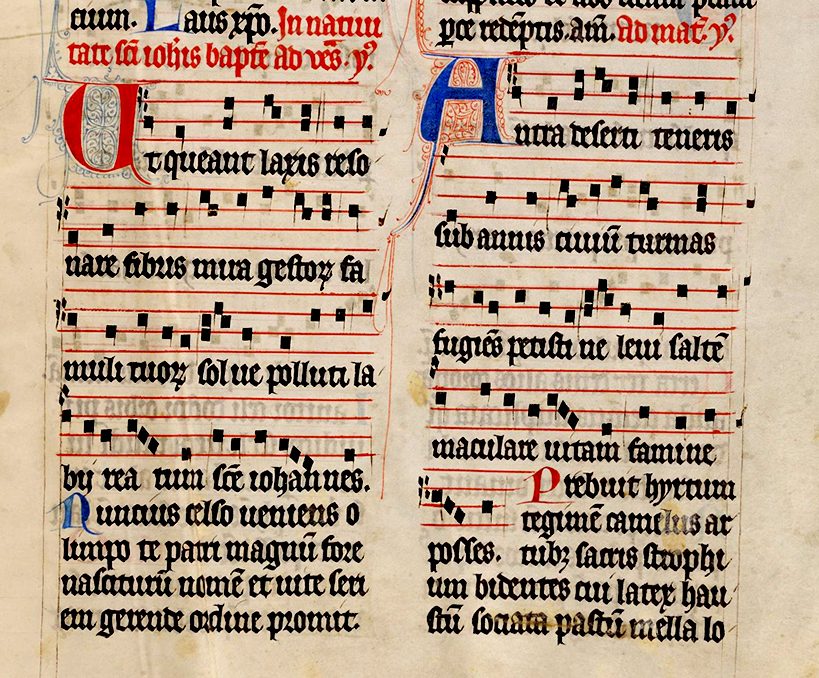 cium. Laus xp̄o. In natiui
tate sc̄i ioh̄is bapt̄e ad ves̄. y᷒.
Ut queant laxis reso
nare fibris mira gestoꝝ fa
muli tuoꝝ solue polluti la
bij rea tum sc̄e iohannes.
Nuncius celso ueniens o
limpo te patri magnū fore
nasciturū nomē et uite seri
em gerende ordine promit.
pc̄e redēptis. am̄. Ad mat̄. y᷒.
Antra deserti teneris
sub annis ciuiū turmas
fugiēs petisti ne leui saltē
maculare uitam famine
Prebuit hyrtum
tegimē camelus ar
posses. tubꝫ sacris strophi
um bidentes cui latex hau
stū sociata pastū mella lo